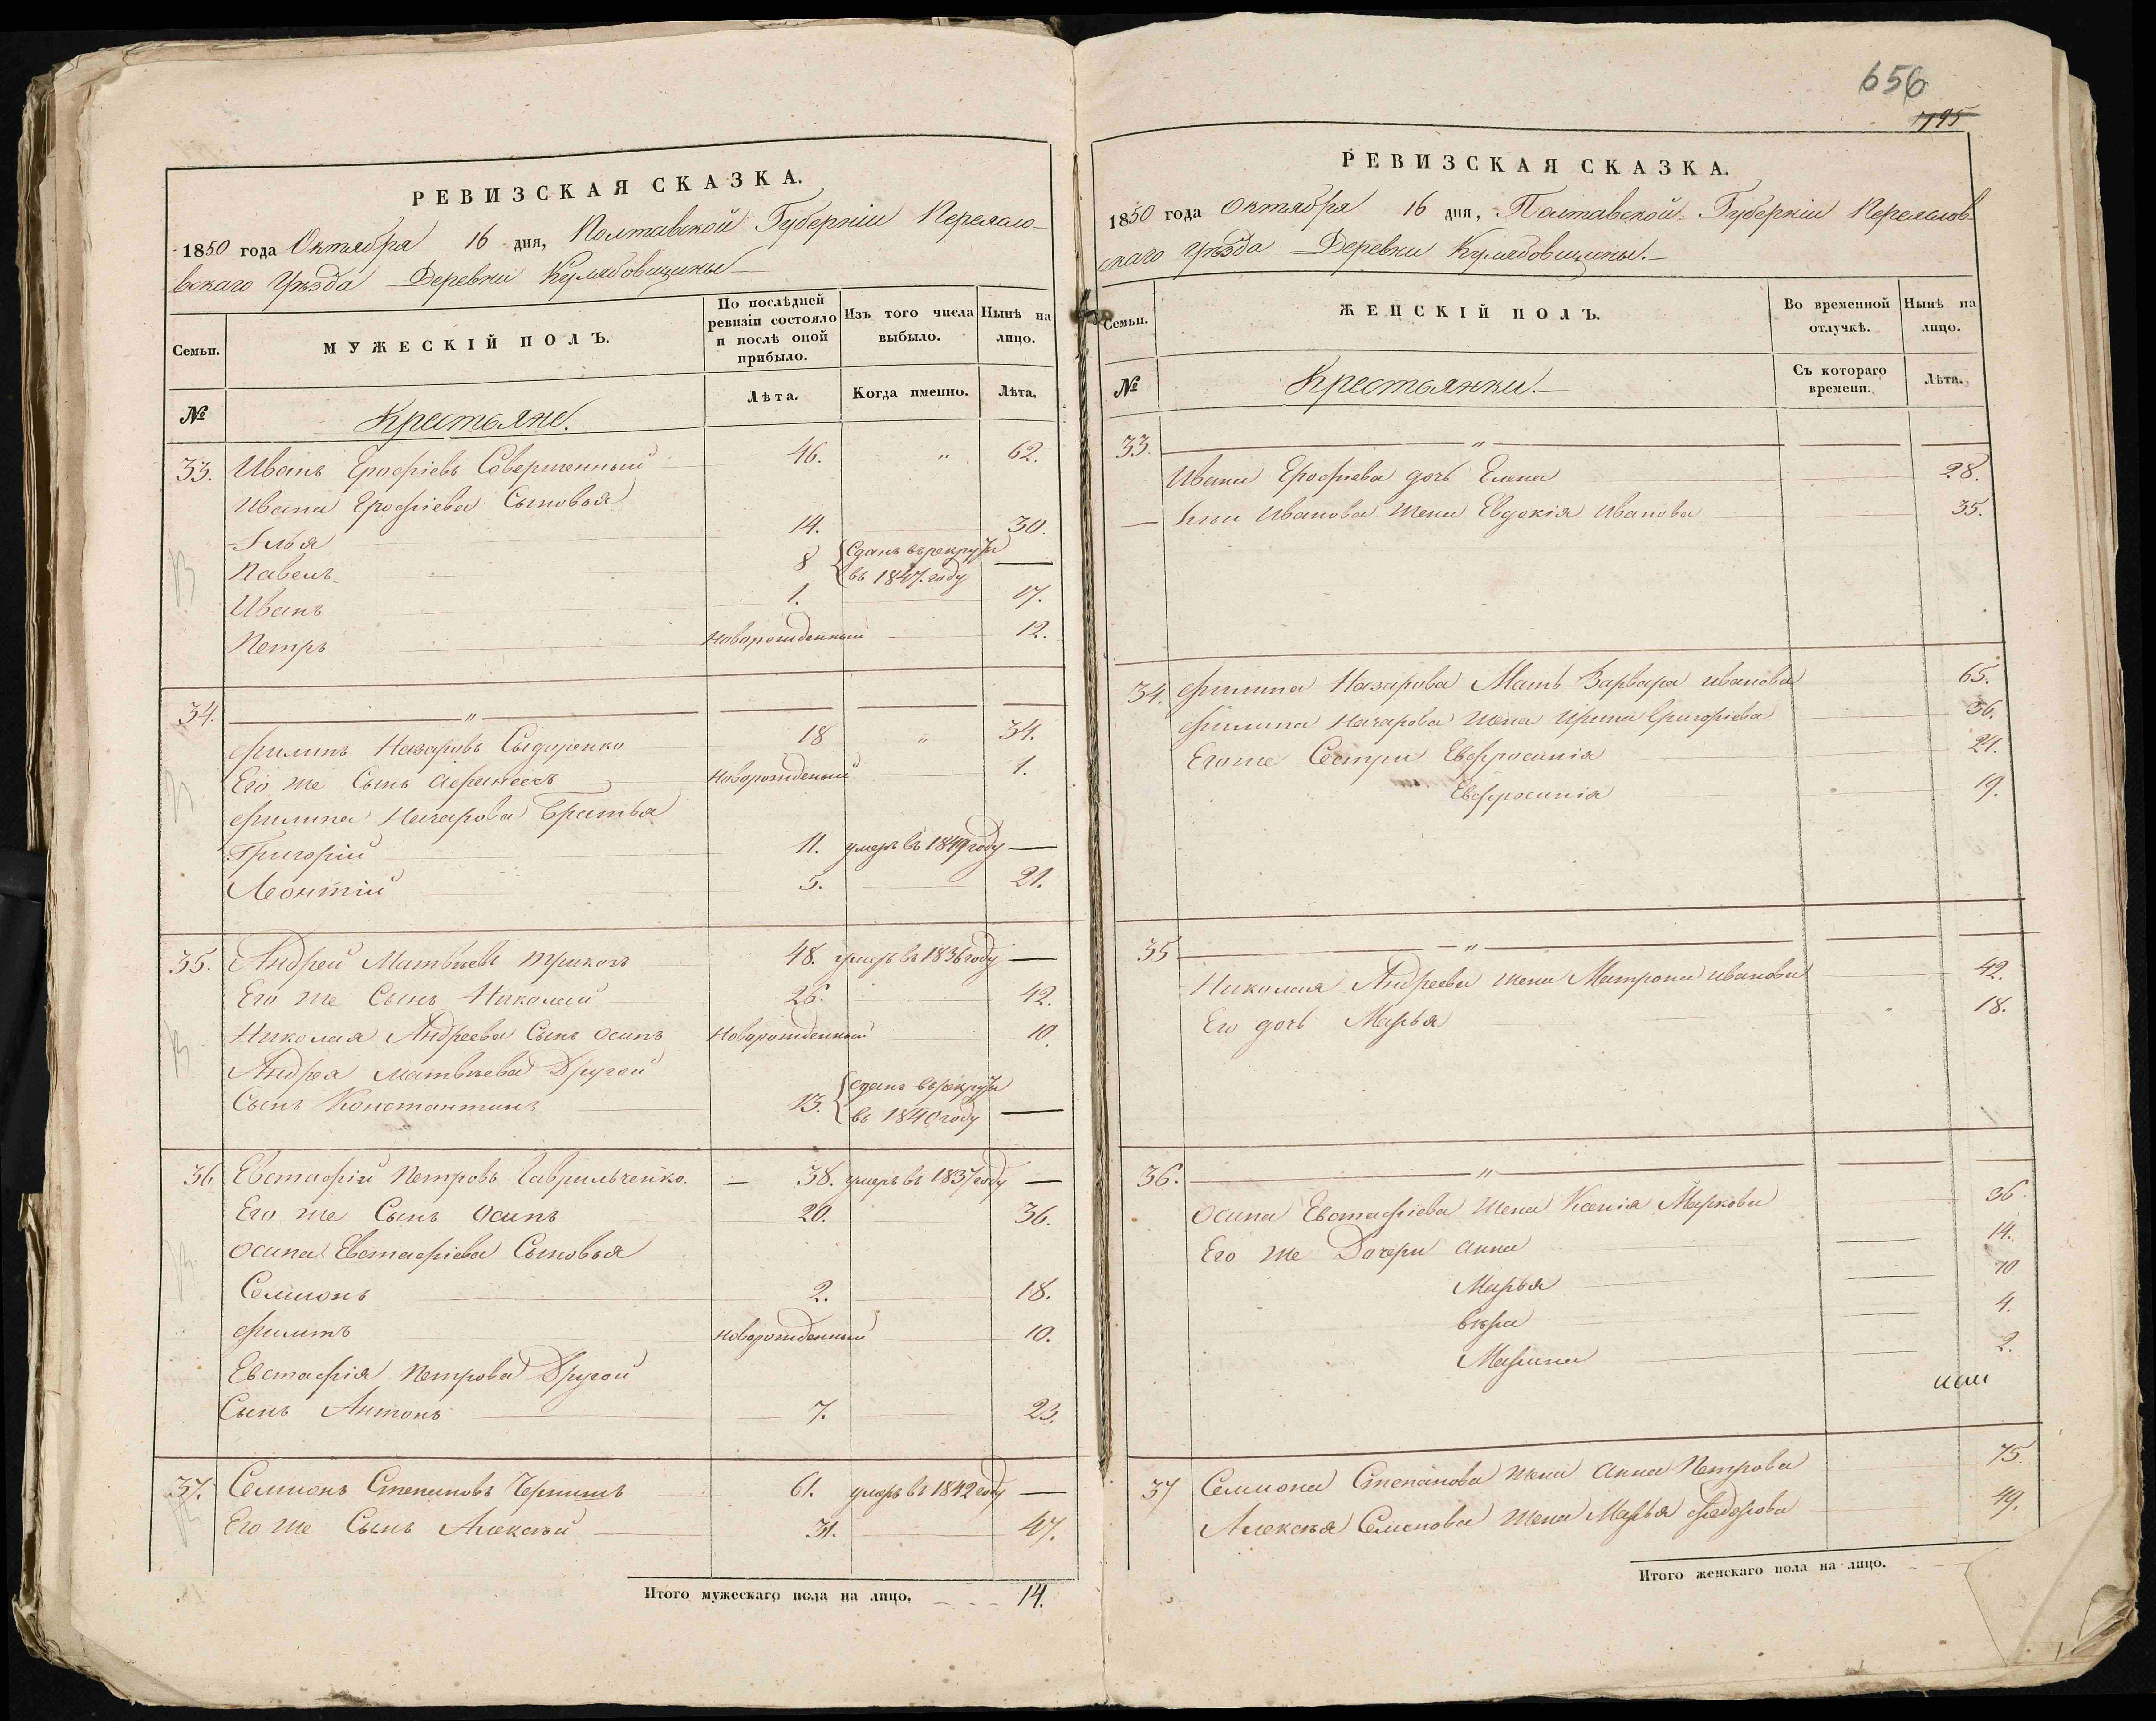 РЕВИЗСКАЯ СКАЗКА.
1850 года Октября 16 дня, Полтавской Губерніи Переясло-
вскаго Уѣзда Деревни Кулябовщины
Семьи.
МУЖЕСКІЙ ПОЛЪ.
По послѣдней ревизіи состояло и послѣ оной прибыло.
Изъ того числа выбыло.
Нынѣ на лицо.
№
Крестьяне.
Лѣта.
Когда именно.
Лѣта.
33. Иванъ Ерофіевъ Совершенный 46. " 62.
Ивана Ерофіева Сыновья
Илья 14. 30.
Павелъ 8 Сданъ въ рекруты въ 1847. году —
Иванъ 1. 17.
Петръ Новорожденный 12.
34. "
Филипъ Назаровъ Сыдоренко 18 " 34.
Его же Сынъ Афанасъ Новорожденый 1.
Филипа Назарова Братья
Григорій 11. умеръ въ 1849 году —
Леонтій 5. 21.
35. Андрей Матвѣевъ Трикозъ 48. умеръ въ 1836 году —
Его же Сынъ Николай 26. 42.
Николая Андреева Сынъ Осипъ Новорожденный 10.
Андрея Матвѣева Другой
Сынъ Константинъ 13. Сданъ въ рекруты въ 1840 году —
36 Евстафій Петровъ Гаврильченко. — 38. умеръ въ 1837 году —
Его же Сынъ Осипъ 20. 36.
Осипа Евстафіева Сыновья
Семионъ 2. 18.
Филипъ Новорожденный 10.
Евстафія Петрова Другой
Сынъ Антонъ 7. 23.
37. Семионъ Степановъ Чернишъ 61. умеръ въ 1842 году —
Его же Сынъ Алексѣй 31. 47.
Итого мужескаго пола на лицо. 14.
656
795
РЕВИЗСКАЯ СКАЗКА.
1850 года Октября 16 дня, Полтавской Губерніи Переяслов-
скаго Уѣзда Деревни Кулябовщины.
Семьи.
ЖЕНСКІЙ ПОЛЪ.
Во временной отлучкѣ.
Нынѣ на лицо.
№
Крестьянки.
Съ котораго времени.
Лѣта.
33. "
Ивана Ерофіева дочь Елена 28.
Ильи Иванова жена Евдокія Иванова 35.
34. Филипа Назарова Мать Варвара Иванова 65.
Филипа Назарова жена Ирина Григоріева 36.
Его же Сестры Евфросинія 24.
Евфросинія 19.
35 "
Николая Андреева жена Матрона Иванова 42.
Его дочь Марья 18.
36. "
Осипа Евстафіева жена Ксенія Маркова 36
Его же Дочери Анна 14.
Марья 10
Вѣра 4.
Марина 2.
37 Семиона Степанова жена Анна Петрова 75.
Алексѣя Семенова жена Марья Федорова 49.
Итого женскаго пола на лицо.